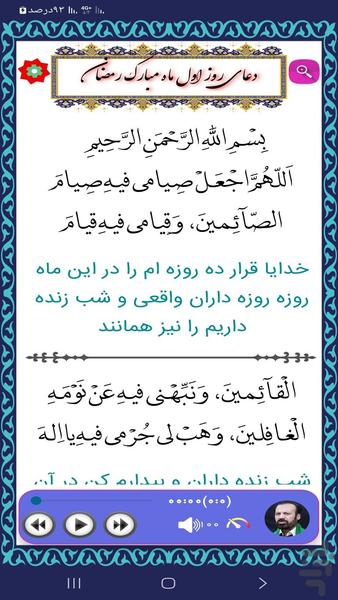 ۹۳درصد 4G+
دعای روز اول ماه مبارک رمضان
بِسْمِ اللهِ الرَّحْمَنِ الرَّحِیمِ
اَللّهُمَّ اجْعَلْ صِیامی فیهِ صِیامَ
الصّاَئِمینَ، وَقِیامی فیهِ قِیامَ
خدایا قرار ده روزه ام را در این ماه
روزه روزه داران واقعی و شب زنده
داریم را نیز همانند
الْقاَئِمینَ، وَنَبِّهْنی فیهِ عَنْ نَوْمَهِ
الْغافِلینَ، وَهَبْ لی جُرْمی فیهِ یااِلهَ
شب زنده داران و بیدارم کن در آن
۰۰:۰۰(۰:۰)
۱۰۰